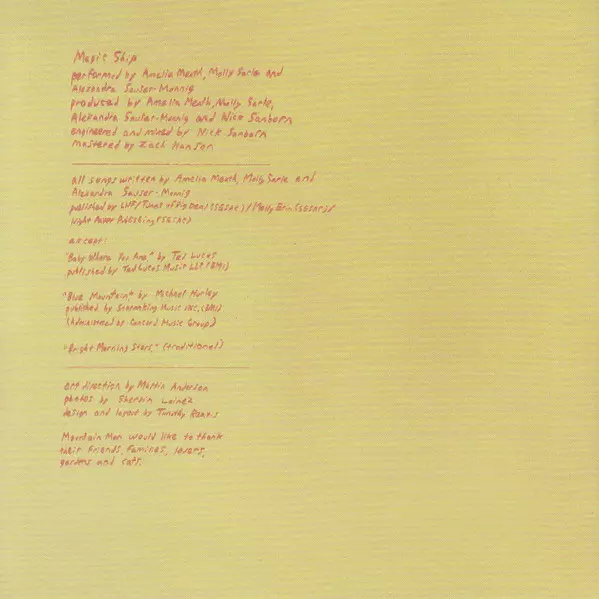 Magic Ship
performed by Amelia Meath, Molly Sarle and
Alexandra Sauser-Monnig
produced by Amelia Meath, Molly Sarle,
Alexandra Sauser-Monnig and Nick Sanborn
engineered and mixed by Nick Sanborn
mastered by Zach Hanson
all songs written by Amelia Meath, Molly Sarle and
Alexandra Sauser-Monnig
published by of Big Deal (SESAC) / Molly Erin (SESAC)/
Night Paver Publishing (SESAC)
except:
"Baby Where You Are" by Ted Lucas
published by Ted Lucas Music LLC (BMI)
"Blue Mountain," by Michael Hurley
published by Snocko Music Inc. (BMI)
(Administered by Concord Music Group)
"Bright Morning Stars" (traditional)
art direction by Martin Anderson
photos by Shervin Lainez
design and layout by Timothy
Mountain Man would like to thank
their friends, families, lovers,
gardens and cats.